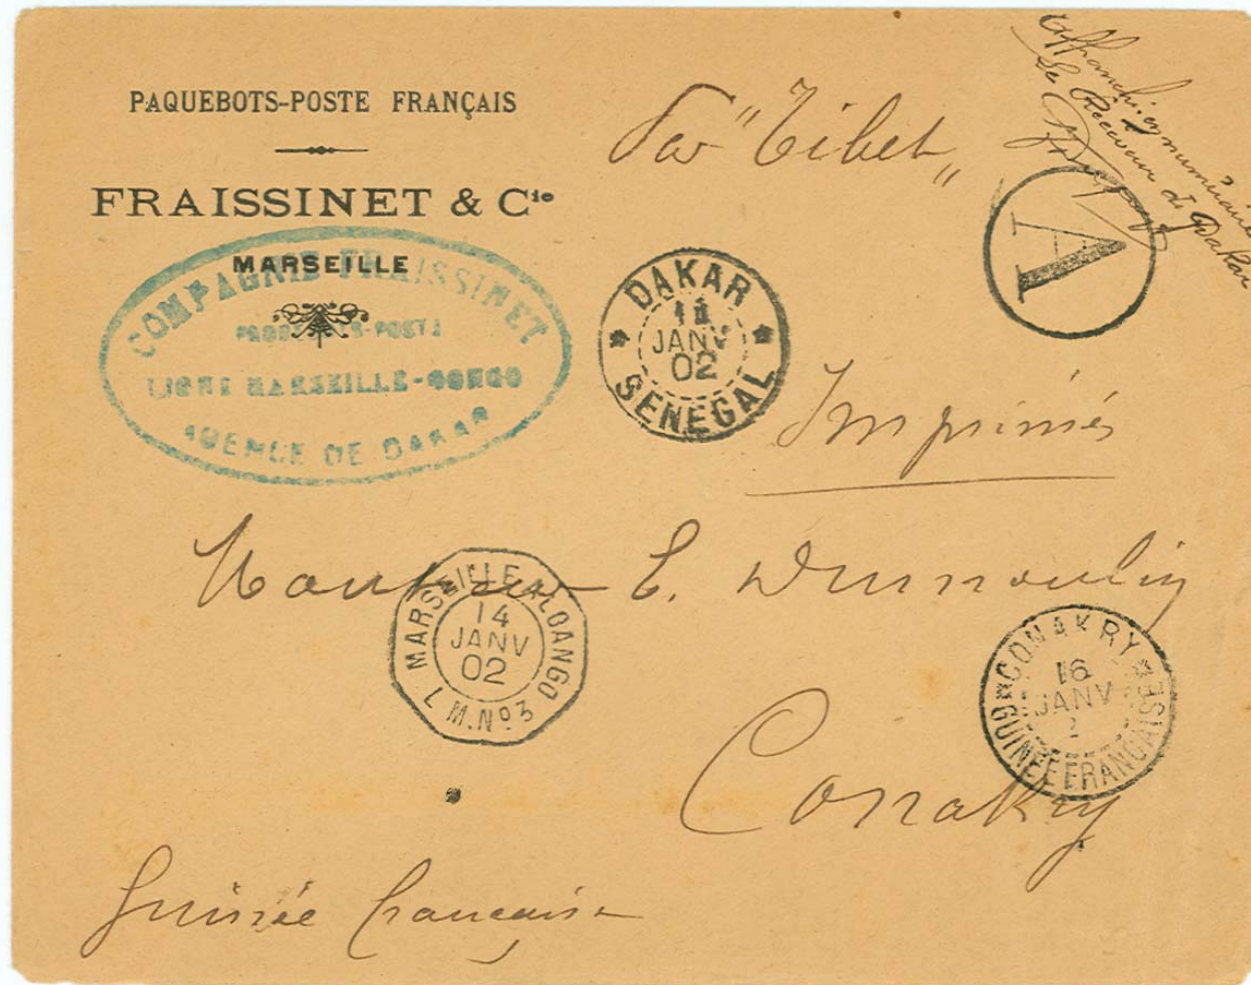 PAQUEBOTS-POSTE FRANÇAIS
FRAISSINET & Cie
MARSEILLE
COMPAGNIE FRAISSINET
PAQUEBOTS-POSTE
LIGNE MARSEILLE-CONGO
AGENCE DE DAKAR
Par "Tibet"
Affranchi en numéraire
Le Receveur de Dakar
A
DAKAR
11
JANV
02
SENEGAL
Imprimés
Monsieur E. Dumoulin
MARSEILLE A LOANGO
14
JANV
02
L M.No3
CONAKRY
16
JANV
2
GUINEE FRANCAISE
Conakry
Guinée française